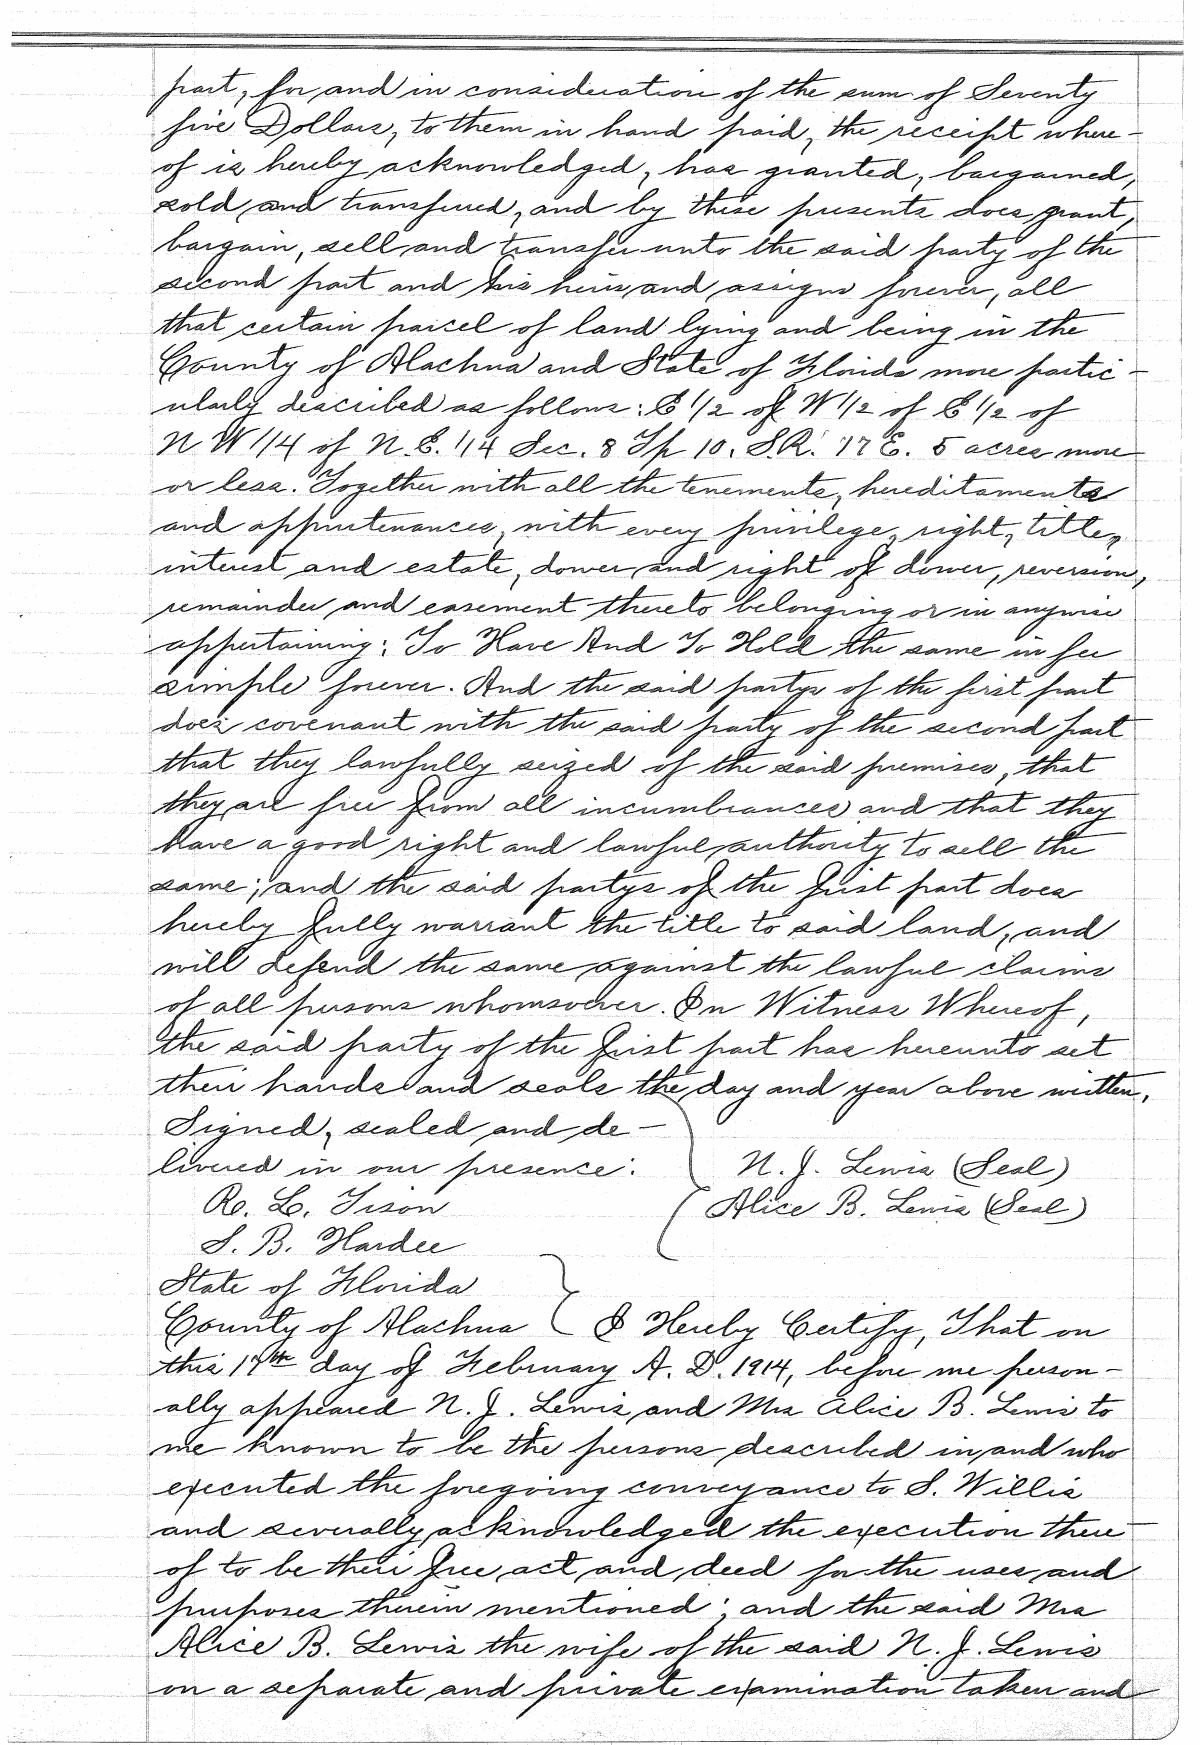 part, for and in consideration of the sum of Seventy
five Dollars, to them in hand paid, the receipt where-
of is hereby acknowledged, has granted, bargained,
sold and transferred, and by these presents does grant,
bargain, sell and transfer unto the said party of the
second part and his heirs and assigns forever, all
that certain parcel of land lying and being in the
County of Alachua and State of Florida more partic-
ularly described as follows: E 1/2 of W 1/2 of E 1/2 of
N W 1/4 of N. E. 1/4 Sec. 8 Tp 10. S.R. 17 E. 5 acres more
or less. Together with all the tenements, hereditaments
and appurtenances, with every privilege, right, title,
interest and estate, dower and right of dower, reversion,
remainder and easement thereto belonging or in anywise
appertaining: To Have And To Hold the same in fee
simple forever. And the said partys of the first part
does covenant with the said party of the second part
that they lawfully seized of the said premises, that
they are free from all incumbrances and that they
have a good right and lawful authority to sell the
same; and the said partys of the first part does
hereby fully warrant the title to said land, and
will defend the same against the lawful claims
of all persons whomsoever. In Witness Whereof,
the said party of the first part has hereunto set
their hands and seals the day and year above written.
Signed, sealed and de-
livered in our presence:
N. J. Lewis (Seal)
R. L. Tison
Alice B. Lewis (Seal)
S. B. Hardee
State of Florida
County of Alachua I Hereby Certify, That on
this 17th day of February A. D. 1914, before me person-
ally appeared N. J. Lewis and Mrs Alice B. Lewis to
me known to be the persons described in and who
executed the foregoing conveyance to S. Willis
and severally acknowledged the execution there
of to be their free act and deed for the uses and
purposes therein mentioned; and the said Mrs
Alice B. Lewis the wife of the said N. J. Lewis
on a separate and private examination taken and